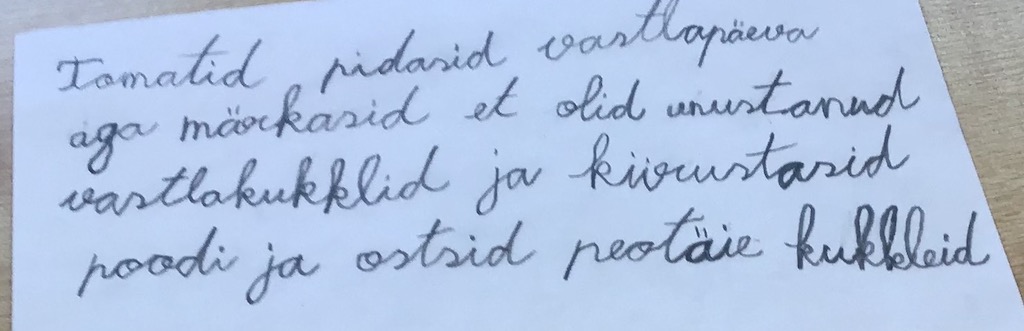 Tomatid pidasid vastlapäeva
aga märkasid et olid unustanud
vastlakukklid ja kiirustasid
poodi ja ostsid peotäie kukkleid